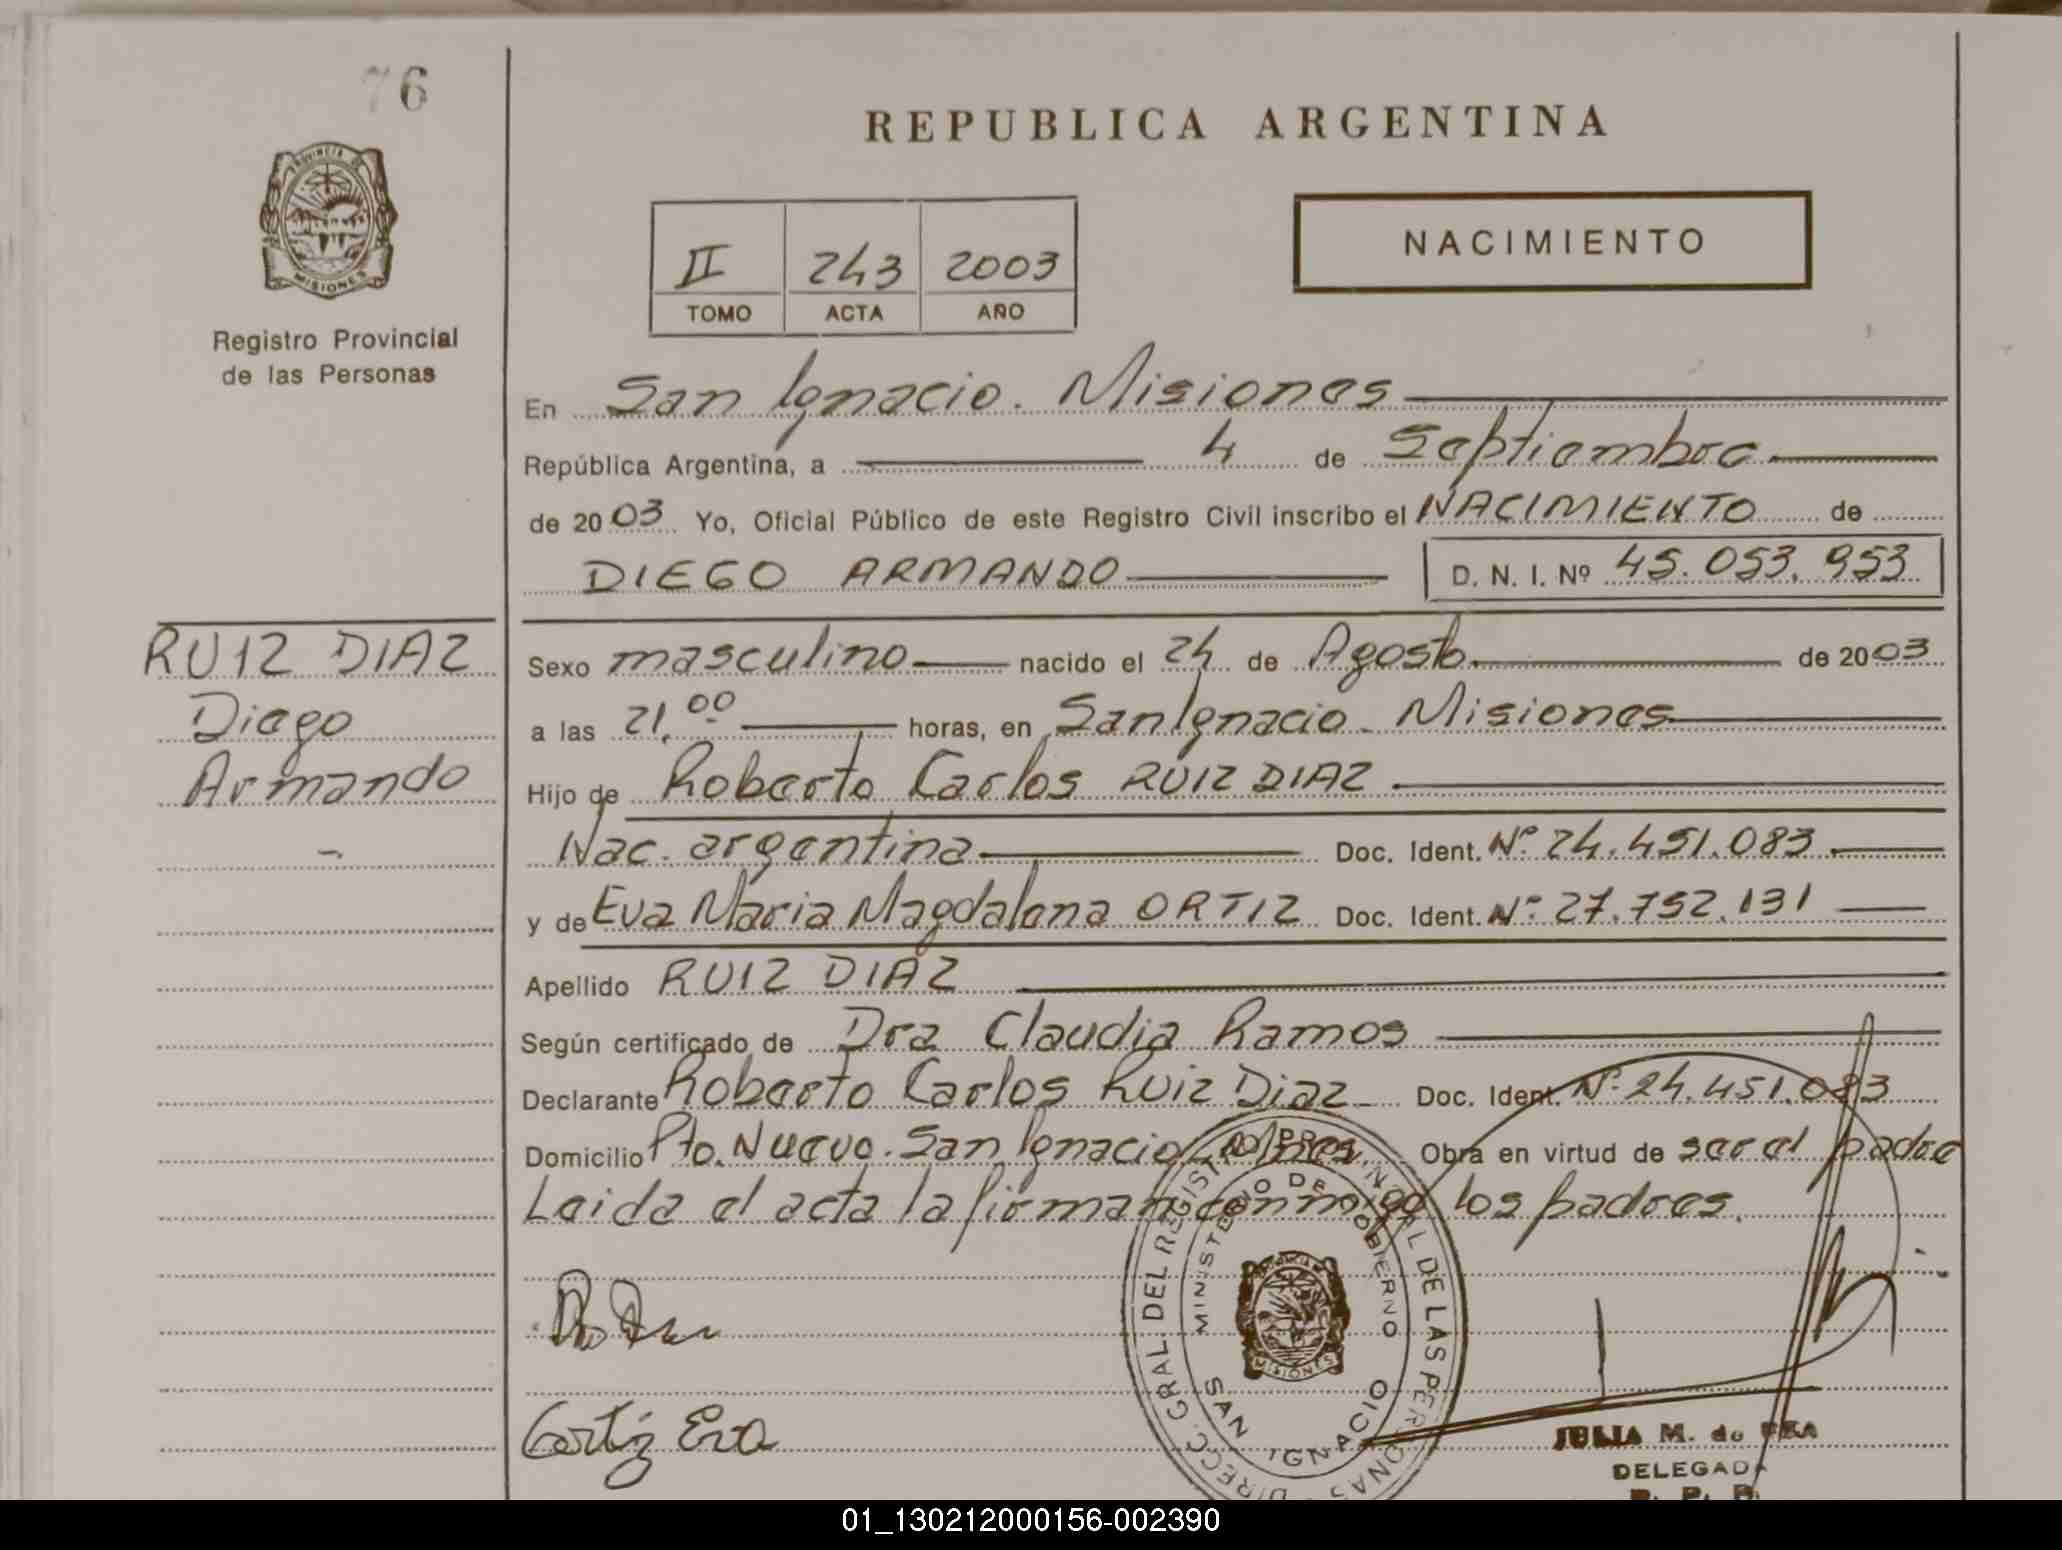 76
REPUBLICA ARGENTINA
PROVINCIA DE
MISIONES
Registro Provincial
de las Personas
II 243 2003
TOMO ACTA AÑO
NACIMIENTO
En San Ignacio. Misiones
República Argentina, a 4 de Septiembre
de 2003 Yo, Oficial Público de este Registro Civil inscribo el NACIMIENTO de
DIEGO ARMANDO D. N. I. Nº 45.053.953
RUIZ DIAZ
Diego
Armando
Sexo masculino nacido el 24 de Agosto de 2003
a las 21,00 horas, en San Ignacio. Misiones
Hijo de Roberto Carlos RUIZ DIAZ
Nac. argentina Doc. Ident. Nº 24.451.083
y de Eva Maria Magdalena ORTIZ Doc. Ident. Nº 27.752.131
Apellido RUIZ DIAZ
Según certificado de Dra Claudia Ramos
Declarante Roberto Carlos Ruiz Diaz Doc. Ident. Nº 24.451.083
Domicilio Pto. Nuevo. San Ignacio. Mnes. Obra en virtud de ser el padre
Leida el acta la firman conmigo los padres.
DIRECC. GRAL DEL REGISTRO PROVINCIAL DE LAS PERSONAS
MINISTERIO DE GOBIERNO
MISIONES
SAN IGNACIO
Ortiz Eva
JULIA M. de
DELEGADA
R. P. P.
01_130212000156-002390